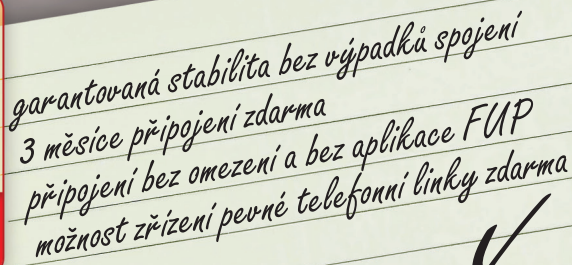 garantovaná stabilita bez výpadků spojení
3 měsíce připojení zdarma
připojení bez omezení a bez aplikace FUP
možnost zřízení pevné telefonní linky zdarma